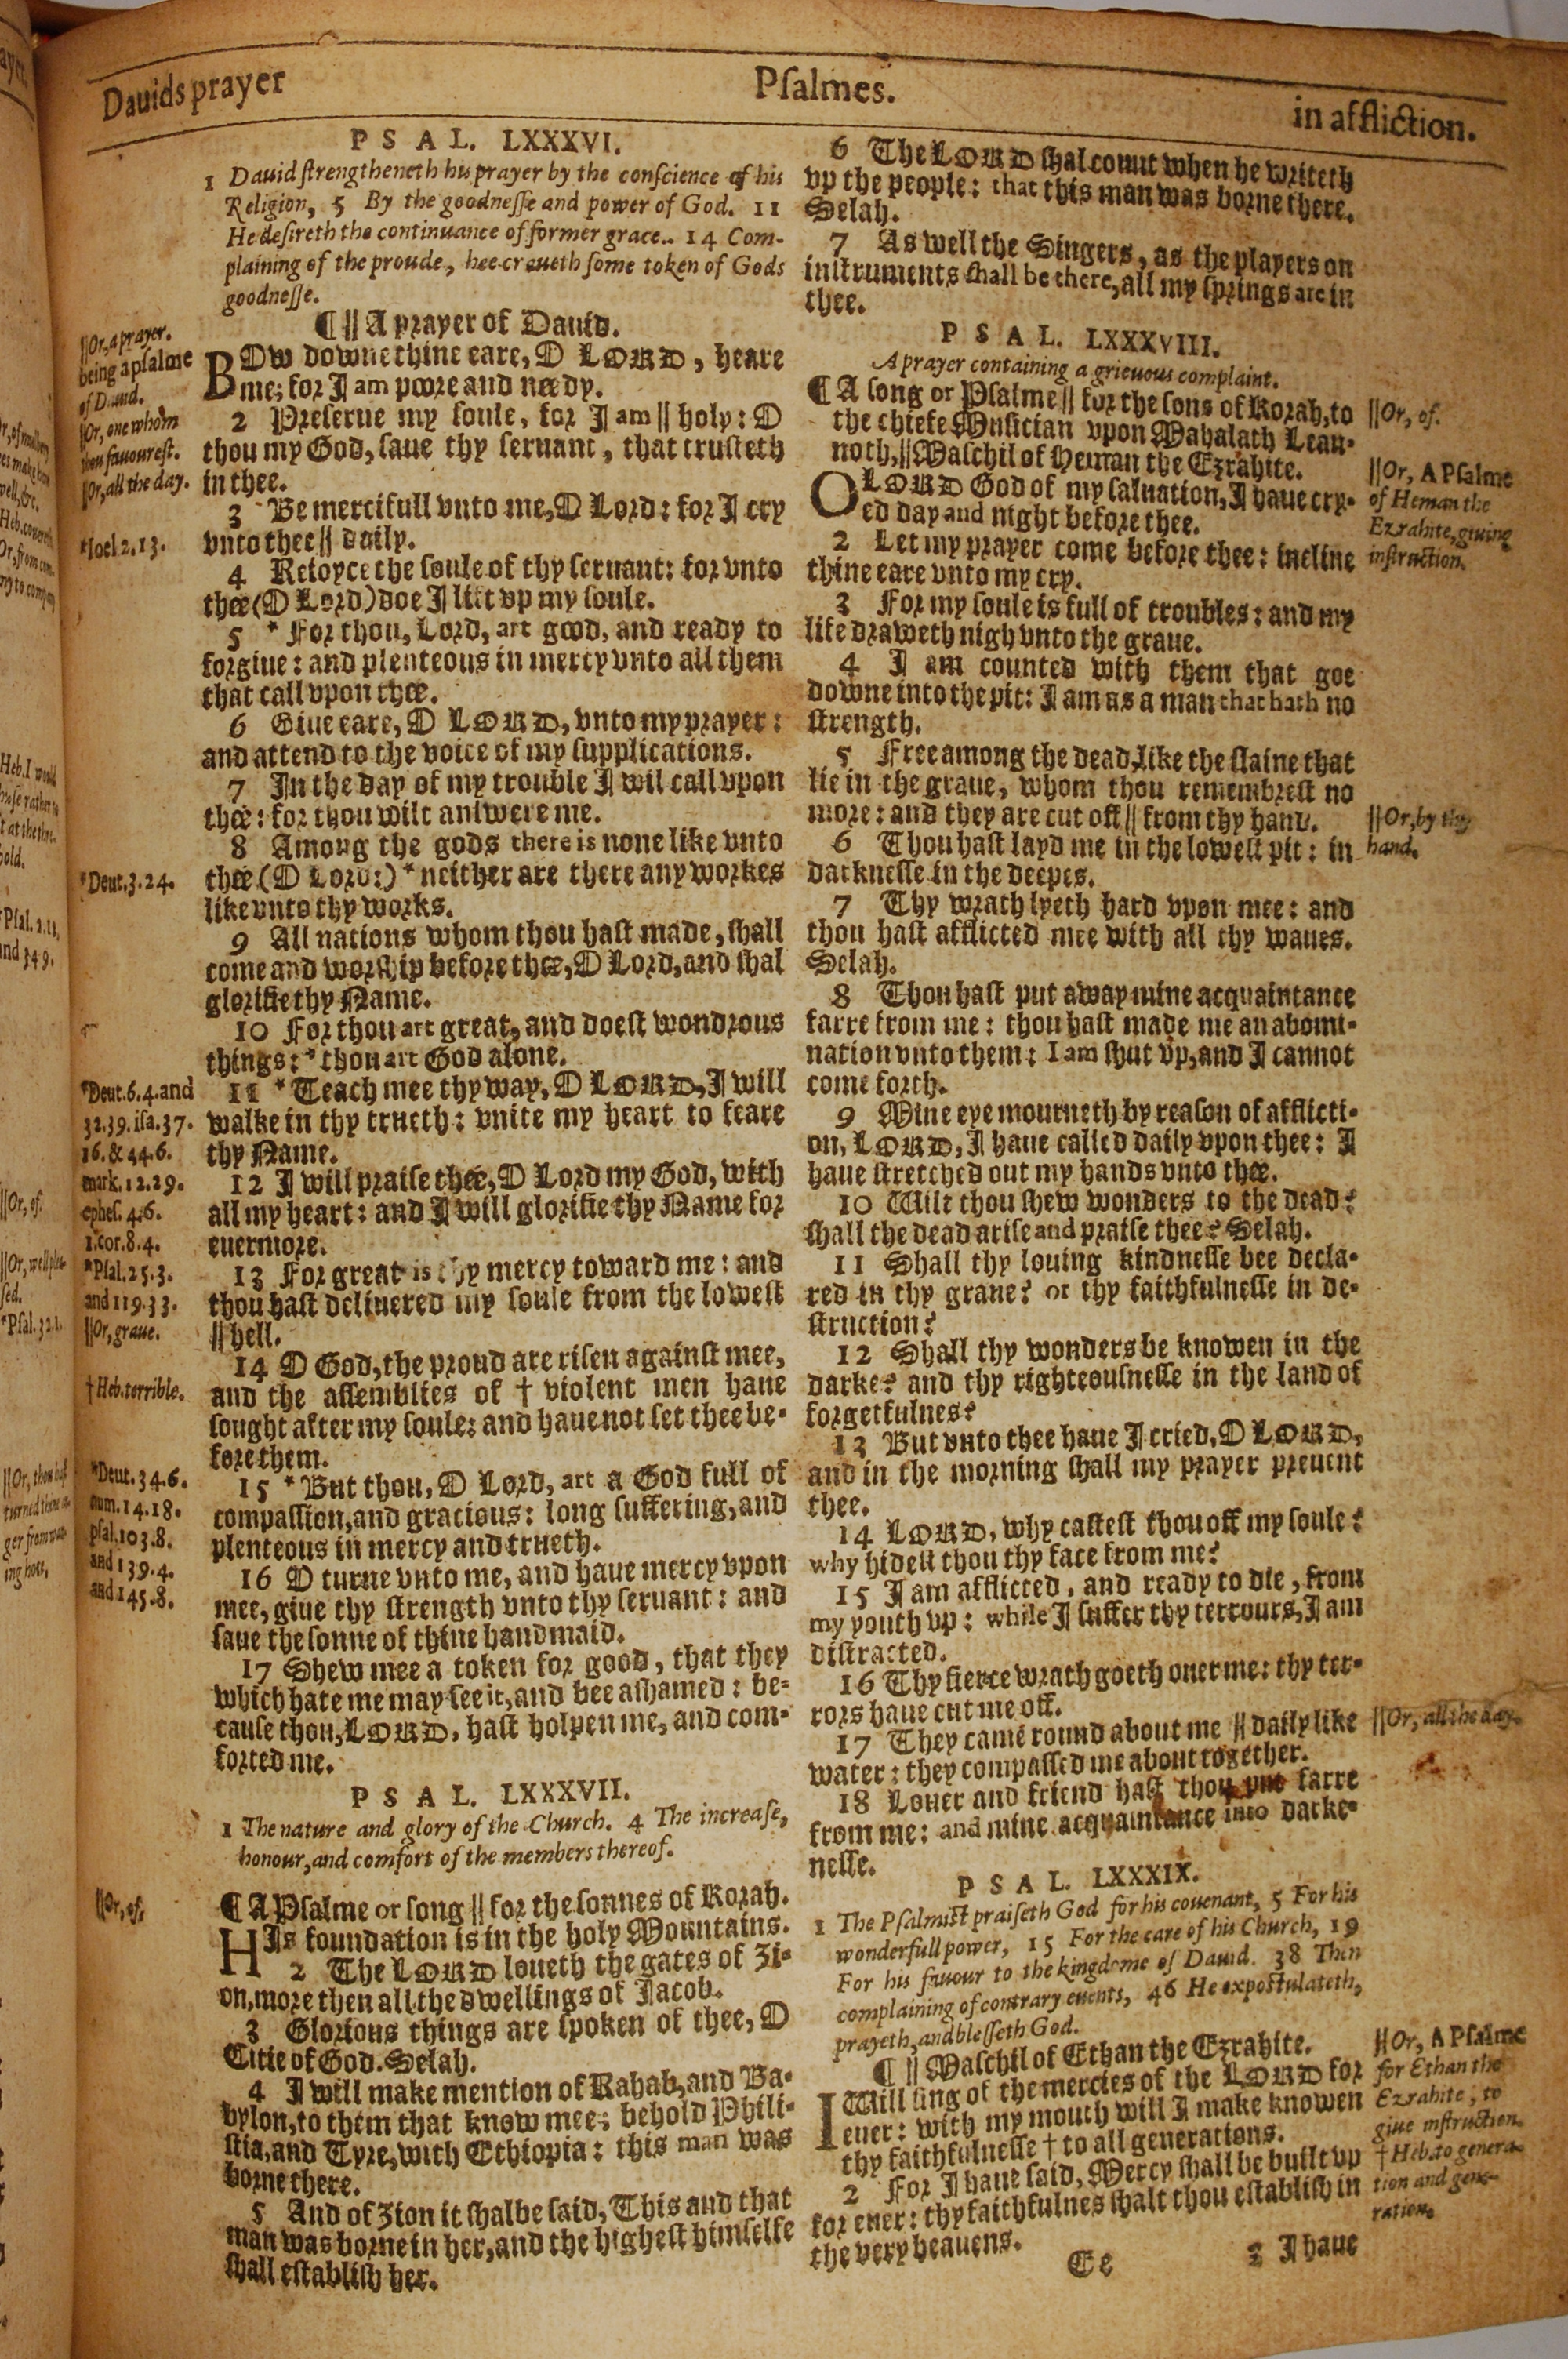 Dauids prayer
Psalmes.
in affliction.
P S A L. LXXXVI.
1 Dauid strengtheneth his prayer by the conscience of his
Religion, 5 By the goodnesse and power of God. 11
He desireth the continuance of former grace. 14 Com-
plaining of the proude, hee craueth some token of Gods
goodnesse.
¶ || A prayer of Dauid.
BOw downe thine eare, O LORD, heare
me: for I am poore and needy.
2 Preserue my soule, for I am || holy: O
thou my God, saue thy seruant, that trusteth
in thee.
3 Be mercifull vnto me, O Lord: for I cry
vnto thee || daily.
4 Reioyce the soule of thy seruant: for vnto
thee (O Lord) doe I lift vp my soule.
5 * For thou, Lord, art good, and ready to
forgiue: and plenteous in mercy vnto all them
that call vpon thee.
6 Giue eare, O LORD, vnto my prayer:
and attend to the voice of my supplications.
7 In the day of my trouble I wil call vpon
thee: for thou wilt answere me.
8 Among the gods there is none like vnto
thee (O Lord:) * neither are there any workes
like vnto thy works.
9 All nations whom thou hast made, shall
come and worship before thee, O Lord, and shal
glorifie thy Name.
10 For thou art great, and doest wondrous
things: * thou art God alone.
11 * Teach mee thy way, O LORD, I will
walke in thy trueth: vnite my heart to feare
thy Name.
12 I will praise thee, O Lord my God, with
all my heart: and I will glorifie thy Name for
euermore.
13 For great is thy mercy toward me: and
thou hast deliuered my soule from the lowest
|| hell.
14 O God, the proud are risen against mee,
and the assemblies of † violent men haue
sought after my soule: and haue not set thee be-
fore them.
15 * But thou, O Lord, art a God full of
compassion, and gracious: long suffering, and
plenteous in mercy and trueth.
16 O turne vnto me, and haue mercy vpon
mee, giue thy strength vnto thy seruant: and
saue the sonne of thine handmaid.
17 Shew mee a token for good, that they
which hate me may see it, and bee ashamed: be-
cause thou, LORD, hast holpen me, and com-
forted me.
P S A L. LXXXVII.
1 The nature and glory of the Church. 4 The increase,
honour, and comfort of the members thereof.
¶ A Psalme or song || for the sonnes of Korah.
HIs foundation is in the holy Mountains.
2 The LORD loueth the gates of Zi-
on, more then all the dwellings of Jacob.
3 Glorious things are spoken of thee, O
Citie of God. Selah.
4 I will make mention of Rahab, and Ba-
bylon, to them that know mee; behold Phili-
stia, and Tyre, with Ethiopia: this man was
borne there.
5 And of Zion it shalbe said, This and that
man was borne in her, and the highest himselfe
shall establish her.
||Or, a prayer,
being a psalme
of Dauid.
||Or, one whom
thou fauourest.
||Or, all the day.
*Ioel 2.13.
*Deut. 3.24.
*Deut. 6.4. and
32.39. isa. 37.
16. & 44.6.
mark. 12.29.
ephes. 4.6.
1. cor. 8.4.
*Psal. 25.3.
and 119.33.
||Or, graue.
†Heb. terrible.
*Deut. 34.6.
num. 14.18.
psal. 103.8.
and 139.4.
and 145.8.
||Or, of.
6 The LORD shal count when he writeth
vp the people: that this man was borne there.
Selah.
7 As well the Singers, as the players on
instruments shall be there, all my springs are in
thee.
P S A L. LXXXVIII.
A prayer containing a grieuous complaint.
¶ A song or Psalme || for the sons of Korah, to
the chiefe Musician vpon Mahalath Lean-
noth, || Maschil of Heman the Ezrahite.
O LORD God of my saluation, I haue cry-
ed day and night before thee.
2 Let my prayer come before thee: incline
thine eare vnto my cry.
3 For my soule is full of troubles: and my
life draweth nigh vnto the graue.
4 I am counted with them that goe
downe into the pit: I am as a man that hath no
strength.
5 Free among the dead, like the slaine that
lie in the graue, whom thou remembrest no
more: and they are cut off || from thy hand.
6 Thou hast layd me in the lowest pit: in
darknesse in the deepes.
7 Thy wrath lyeth hard vpon mee: and
thou hast afflicted mee with all thy waues.
Selah.
8 Thou hast put away mine acquaintance
farre from me: thou hast made me an abomi-
nation vnto them: I am shut vp, and I cannot
come forth.
9 Mine eye mourneth by reason of afflicti-
on, LORD, I haue called daily vpon thee: I
haue stretched out my hands vnto thee.
10 Wilt thou shew wonders to the dead?
shall the dead arise and praise thee? Selah.
11 Shall thy louing kindnesse bee decla-
red in thy graue? or thy faithfulnesse in de-
struction?
12 Shall thy wonders be knowen in the
darke? and thy righteousnesse in the land of
forgetfulnes?
13 But vnto thee haue I cried, O LORD,
and in the morning shall my prayer preuent
thee.
14 LORD, why castest thou off my soule?
why hidest thou thy face from me?
15 I am afflicted, and ready to die, from
my youth vp: while I suffer thy terrours, I am
distracted.
16 Thy fierce wrath goeth ouer me: thy ter-
rors haue cut me off.
17 They came round about me || daily like
water: they compassed me about together.
18 Louer and friend hast thou put farre
from me: and mine acquaintance into darke-
nesse.
P S A L. LXXXIX.
1 The Psalmist praiseth God for his couenant, 5 For his
wonderfull power, 15 For the care of his Church, 19
For his fauour to the kingdome of Dauid. 38 Then
complaining of contrary euents, 46 He expostulateth,
prayeth, and blesseth God.
¶ || Maschil of Ethan the Ezrahite.
I Will sing of the mercies of the LORD for
euer: with my mouth will I make knowen
thy faithfulnesse † to all generations.
2 For I haue said, Mercy shall be built vp
for euer: thy faithfulnes shalt thou establish in
the very heauens.
Ee
3 I haue
||Or, of.
||Or, A Psalme
of Heman the
Ezrahite, giuing
instruction.
||Or, by thy
hand.
||Or, all the day.
||Or, A Psalme
for Ethan the
Ezrahite, to
giue instruction.
†Heb. to genera-
tion and gene-
ration.